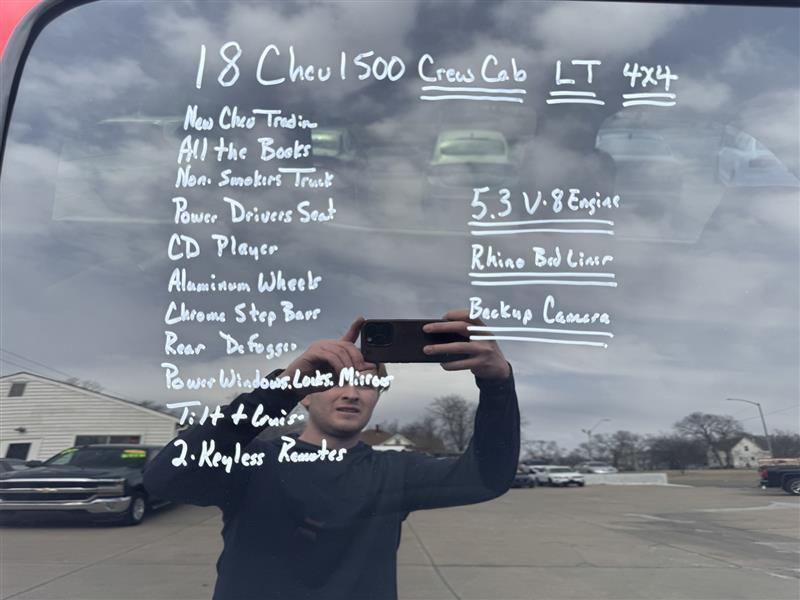 18 Chev 1500 Crew Cab LT 4x4
New Chev Tradin
All the Books
Non. Smokers Truck
Power Drivers Seat
CD Player
Aluminum Wheels
Chrome Step Bars
Rear Defogger
Power Windows. Locks. Mirrors
Tilt + Cruise
2. Keyless Remotes
5.3 V.8 Engine
Rhino Bed Liner
Backup Camera